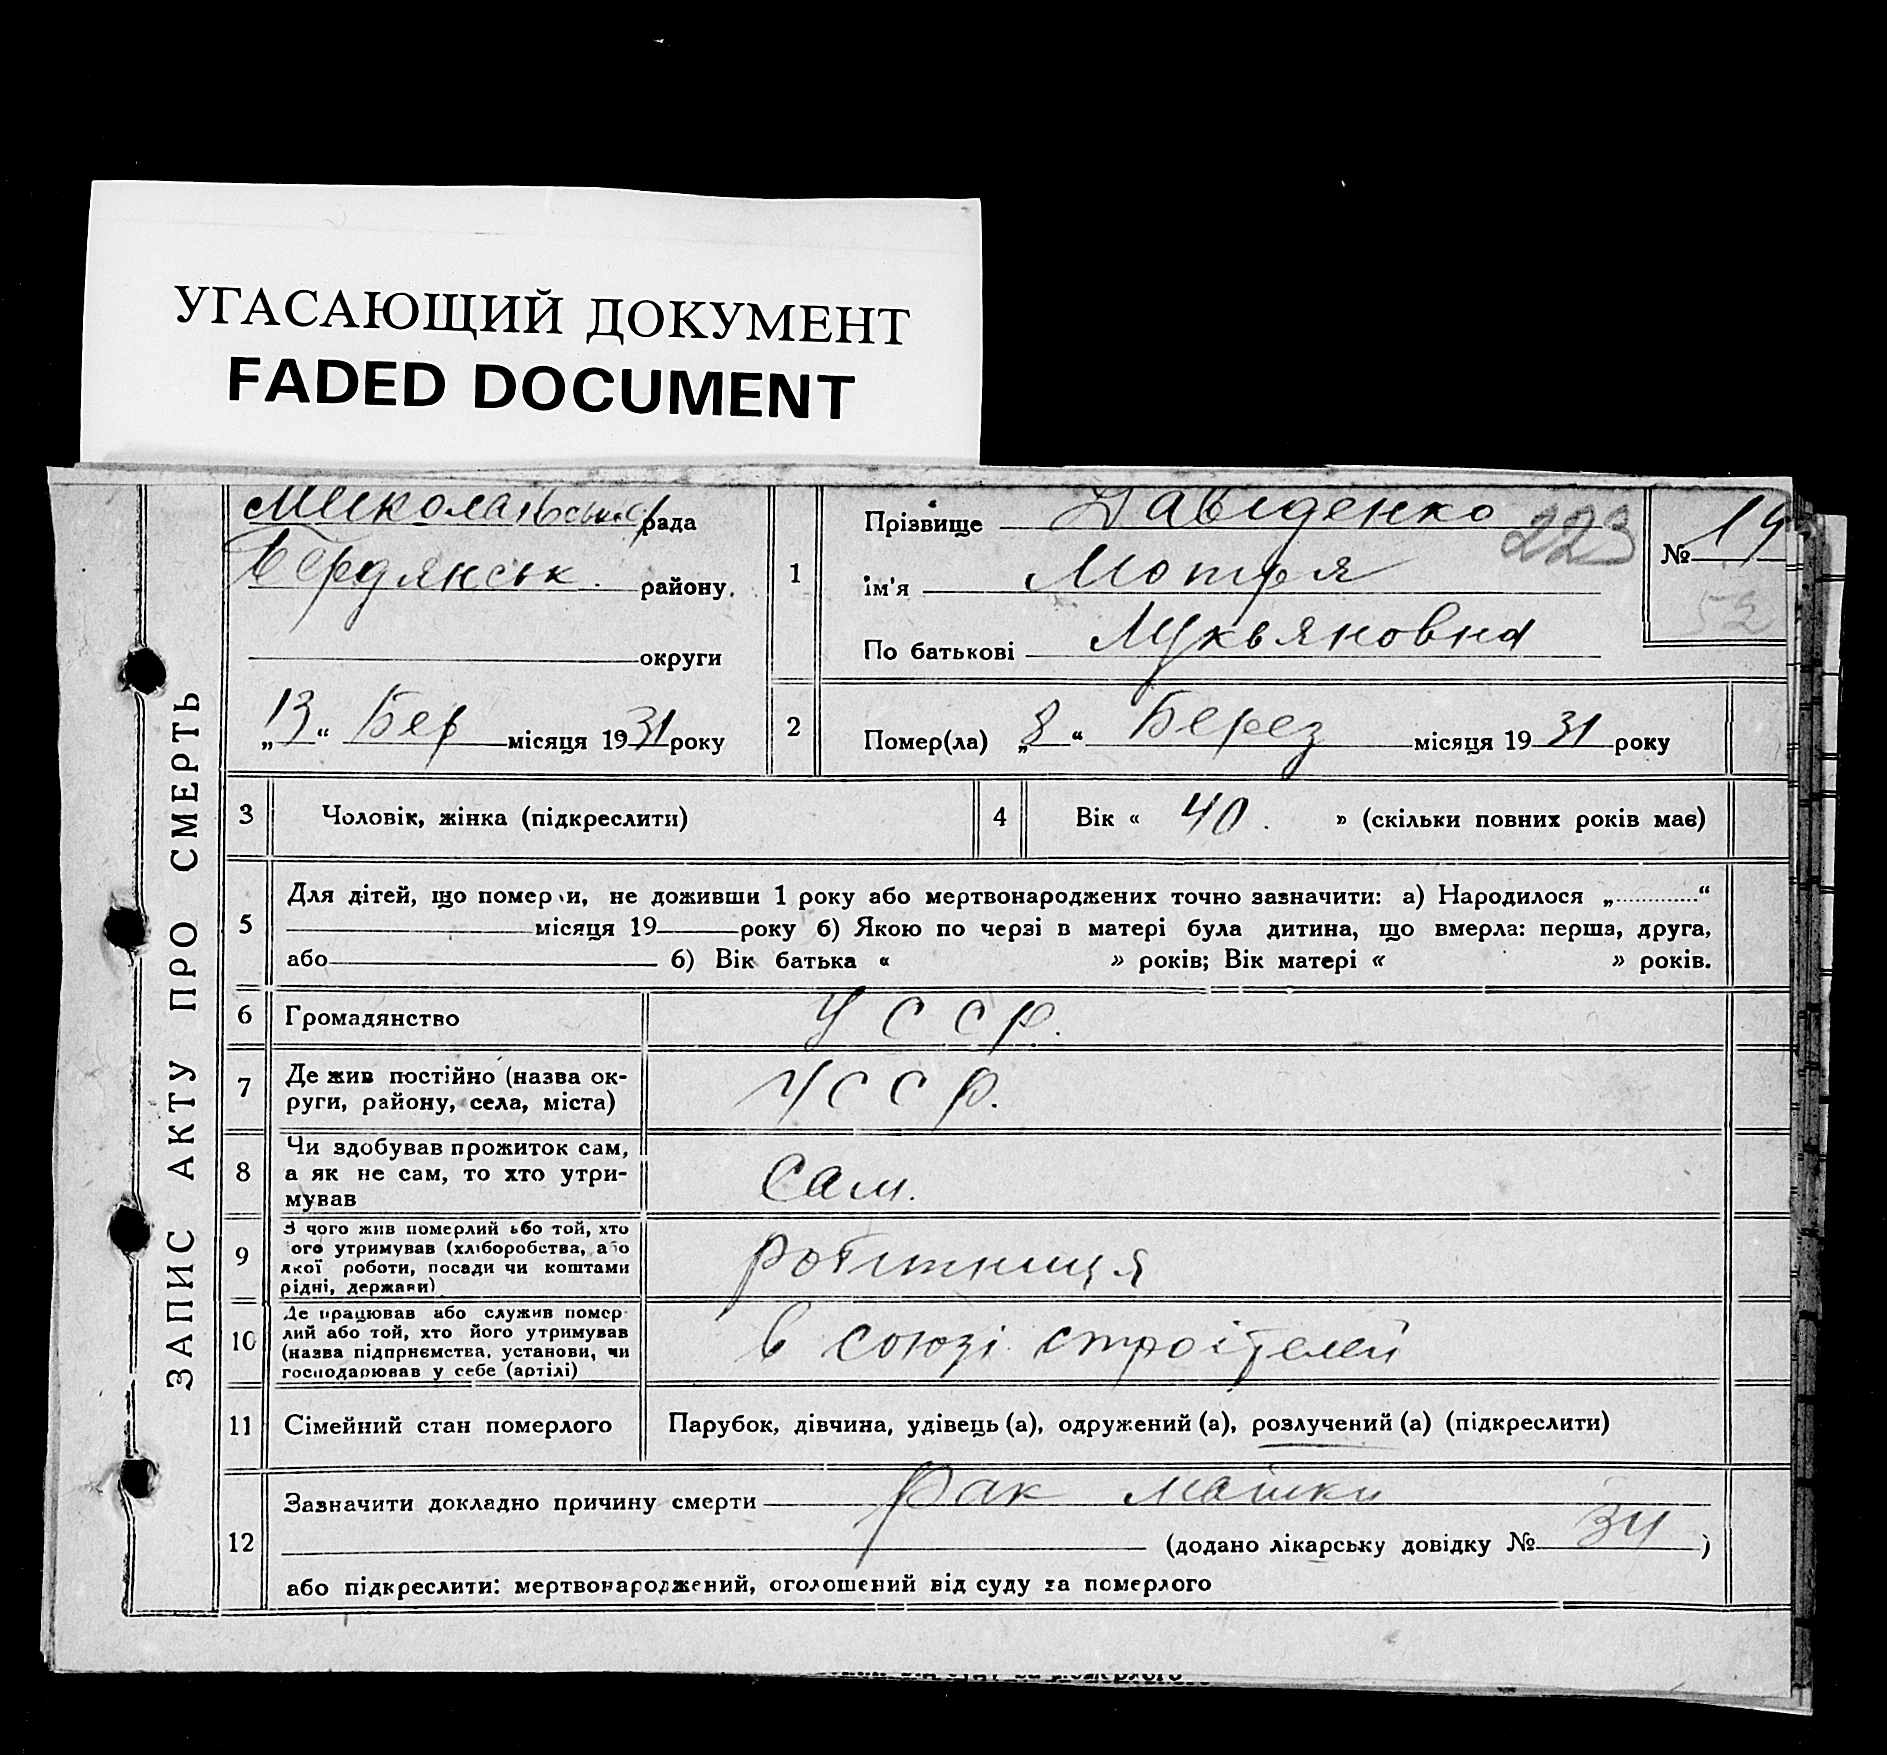 УГАСАЮЩИЙ ДОКУМЕНТ
FADED DOCUMENT
ЗАПИС АКТУ ПРО СМЕРТЬ
рада
Бердянськ. району.
округи
„13“ Бер місяця 1931 року
1
Прізвище Давіденко
223
ім'я Мотря
По батькові Лукьяновна
№ 19
52
2
Помер(ла) „8“ Берез місяця 1931 року
3 Чоловік, жінка (підкреслити)
4 Вік « 40. » (скільки повних років має)
5
Для дітей, що померли, не доживши 1 року або мертвонароджених точно зазначити: а) Народилося „ “
місяця 19 року б) Якою по черзі в матері була дитина, що вмерла: перша, друга,
або б) Вік батька « » років; Вік матері « » років.
6 Громадянство УССР.
7 Де жив постійно (назва ок-
руги, району, села, міста)
УССР.
8
Чи здобував прожиток сам,
а як не сам, то хто утри-
мував
сам.
9
З чого жив померлий або той, хто
ого утримував (хліборобства, або
якої роботи, посади чи коштами
рідні, держави)
робітниця
10
Де працював або служив помер-
лий або той, хто його утримував
(назва підприємства, установи, чи
господарював у себе (артілі)
в союзі строітелей
11 Сімейний стан померлого
Парубок, дівчина, удівець (а), одружений (а), розлучений (а) (підкреслити)
12
Зазначити докладно причину смерти рак матки
(додано лікарську довідку № 34 )
або підкреслити: мертвонароджений, оголошений від суду за померлого